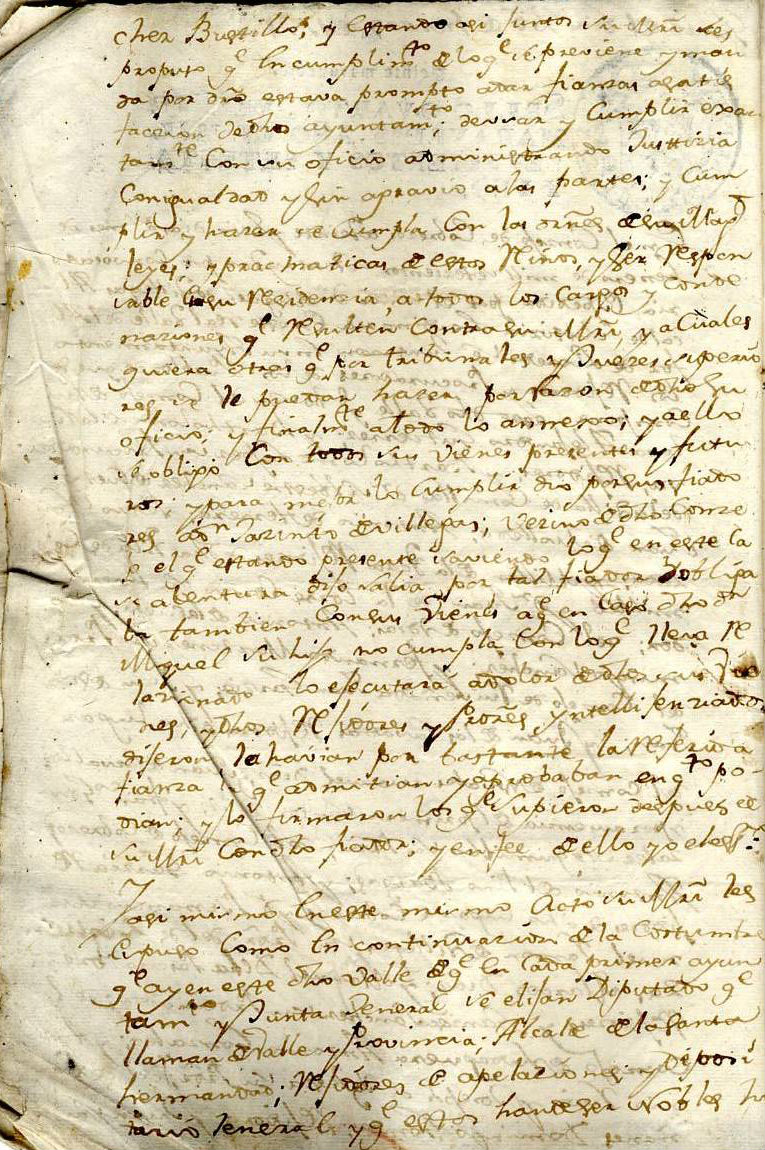 chez Bustillo; y estando asi juntos su Mrd les
propuso q.e en cumplim.to de lo q.e se previene y man
da por dro estava prompto a dar fianzas a satis
facción de dho ayuntam.to; de usar y cumplir exac
tam.te con su oficio administrando Justticia
con igualdad y sin agravio a las partes; y cum
plir y hazer se cumpla con las ordns de su Mag.d
leyes; y pracmaticas de estos Reinos, y ser Respon
sable en su Residencia, a todos los cargos y conde
naziones q.e Resulten contra su Mrd, y a cuales
quiera otras q.e por tribunales y Juezes superio
res se le puedan hazer por razon de dho su
oficio; y finalm.te a todo lo annexo; y a ello
se obligo con todos sus vienes presentes y futu
ros; y para mejor lo cumplir dio por sus fiado
res a d.n Jazinto de Villegas; vezino de dho Conze
el q.e estando presente saviendo lo q.e en este ca
se abentura dijo salia por tal fiador y obliga
ba tambien con sus vienes a q.e en caso dho d.n
Miguel su hijo no cumpla con lo q.e lleva Re
lazionado lo esecutará a dolor de dhos sus vie
nes, y dhos Rejidores y Prores yntellijenziados
dijeron la havian por bastante la Referida
fianza q.e admitian y aprobaban en q.to po
dian; y lo firmaron los q.e supieron despues de
su Mrd con dho fiador; y en fee de ello yo el ess.no
Y asi mismo en este mismo acto su Mrd les
espuso como en continuazion de la costumbre
q.e ay en este dho Valle de q.e en cada primer ayun
tam.to y Junta General se elijan Diputado q.e
llaman de Valle y Provincia; Alcalde de la Santa
hermandad; Rejidores de apelaziones; y deposi
tario General y q.e estos han de ser Nobles